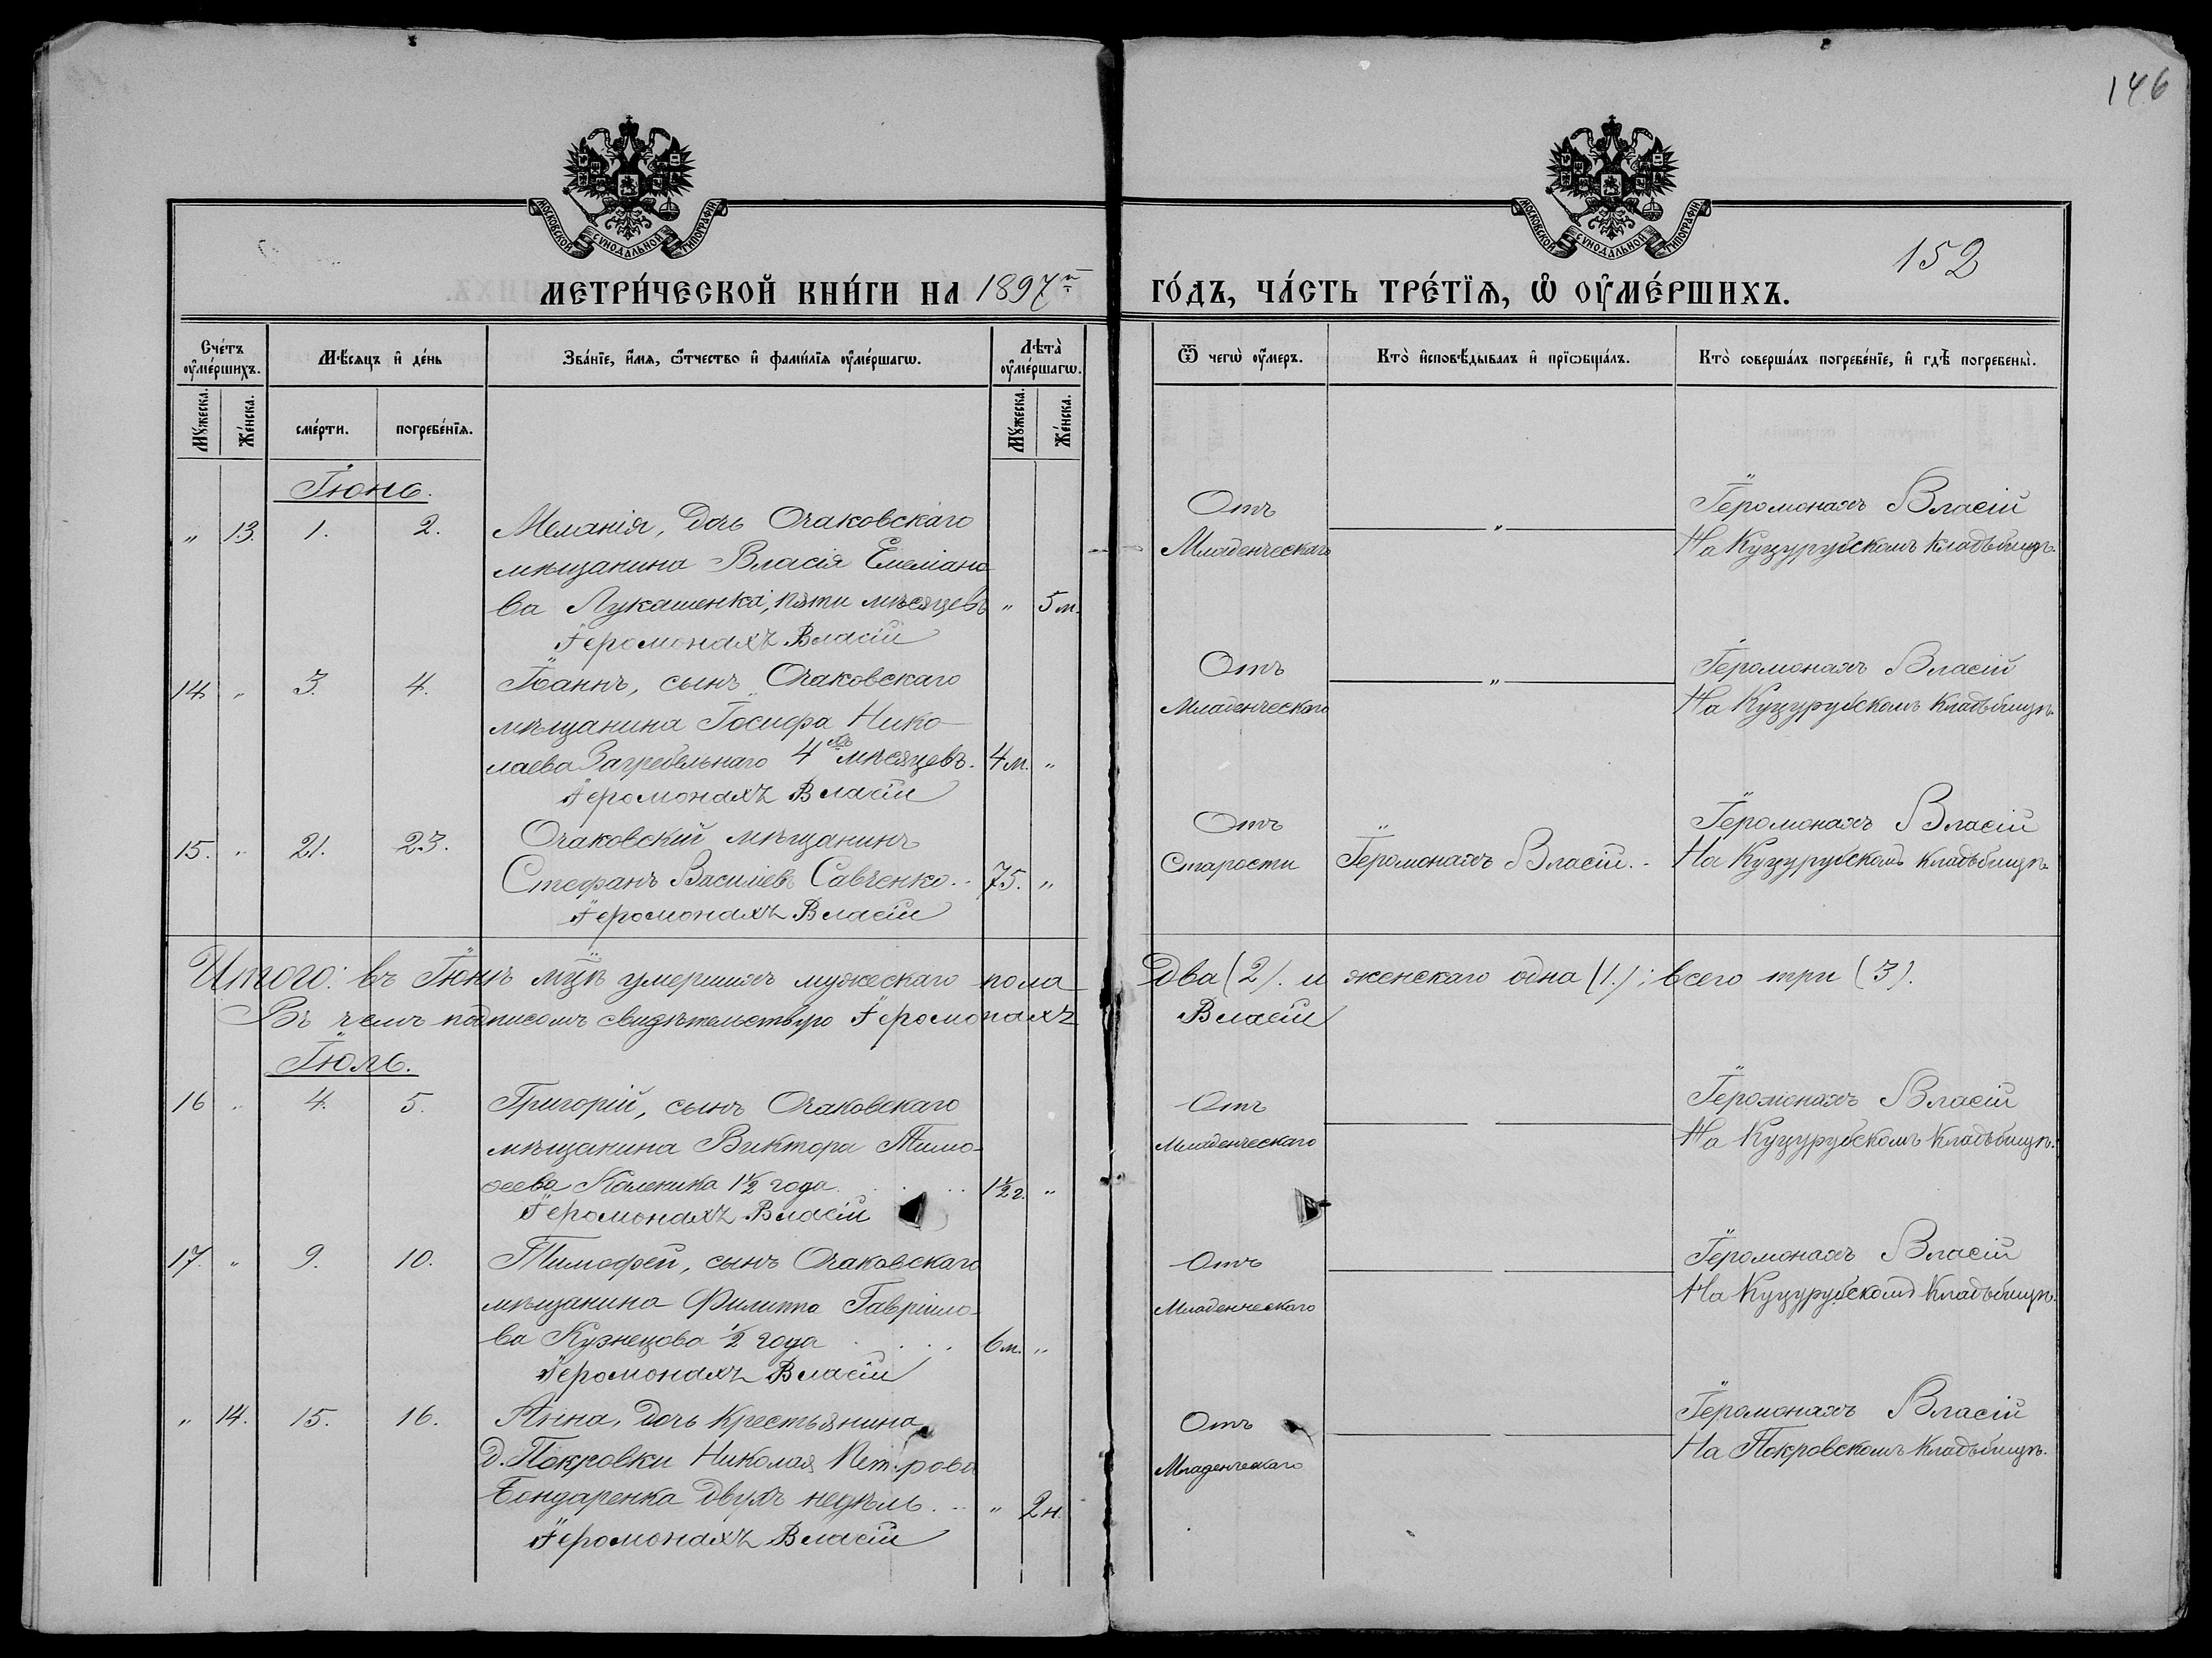 146
МОСКОВСКОЙ СѴНОДАЛЬНОЙ ТИПОГРАФІИ
МОСКОВСКОЙ СѴНОДАЛЬНОЙ ТИПОГРАФІИ
152
МЕТРИ́ЧЕСКОЙ КНИ́ГИ НА 1897й
ГО́ДЪ, ЧА́СТЬ ТРЕ́ТЇѦ, Ѡ҆ ОУ҆МЕ́РШИХЪ.
Сче́тъ оу҆ме́ршихъ.
Мѣ́сѧцъ и҆ де́нь
Зва́нїе, и҆́мѧ, ѻ҆́тчество и҆ фами́лїѧ оу҆ме́ршагѡ.
Лѣ́та оу҆ме́ршагѡ.
Ѿ чегѡ̀ оу҆́меръ.
Кто̀ и҆сповѣ́дывалъ и҆ прїѡбща́лъ.
Кто̀ соверша́лъ погребе́нїе, и҆ гдѣ̀ погребены̀.
Мꙋ́жеска.
Же́нска.
сме́рти.
погребе́нїѧ.
Мꙋ́жеска.
Же́нска.
Іюнь.
" 13. 1. 2. Меланія, дочь Очаковскаго
мѣщанина Власія Емеліано
ва Лукашенка, пяти мѣсяцевъ " 5 м.
Іеромонахъ Власій
Отъ
Младенческаго
"
Іеромонахъ Власій
На Куцурубскомъ кладъбищѣ.
14 " 3. 4. Іоаннъ, сынъ Очаковскаго
мѣщанина Іосифа Нико
лаева Загребельнаго 4хъ мѣсяцевъ. 4 м. "
Іеромонахъ Власій
Отъ
Младенческаго
"
Іеромонахъ Власій
На Куцурубскомъ кладъбищѣ.
15. " 21. 23. Очаковскій мѣщанинъ
Стефанъ Василіевъ Савченко. 75. "
Іеромонахъ Власій
Отъ
Старости
Іеромонахъ Власій.
Іеромонахъ Власій
На Куцурубскомъ кладъбищѣ.
Итого: въ Іюнѣ мцѣ умершихъ мужескаго пола два (2). и женскаго одна (1.); всего три (3).
Въ чемъ подписомъ свидѣтельствую Іеромонахъ Власій
Іюль.
16 " 4. 5. Григорій, сынъ Очаковскаго
мѣщанина Виктора Тимо-
ѳеева Коленика 1½ года 1½ г. "
Іеромонахъ Власій
Отъ
Младенческаго
Іеромонахъ Власій
На Куцурубскомъ кладъбищѣ.
17. " 9. 10. Тимофей, сынъ Очаковскаго
мѣщанина Филиппа Гавріило-
ва Кузнецова ½ года 6 м. "
Іеромонахъ Власій
Отъ
Младенческаго
Іеромонахъ Власій
На Куцурубскомъ кладъбищѣ.
" 14. 15. 16. Анна, дочь крестьянина
д. Покровки Николая Петрова
Бондаренка двухъ недѣль. " 2 н.
Іеромонахъ Власій
Отъ
Младенческаго
Іеромонахъ Власій
На Покровскомъ кладъбищѣ.